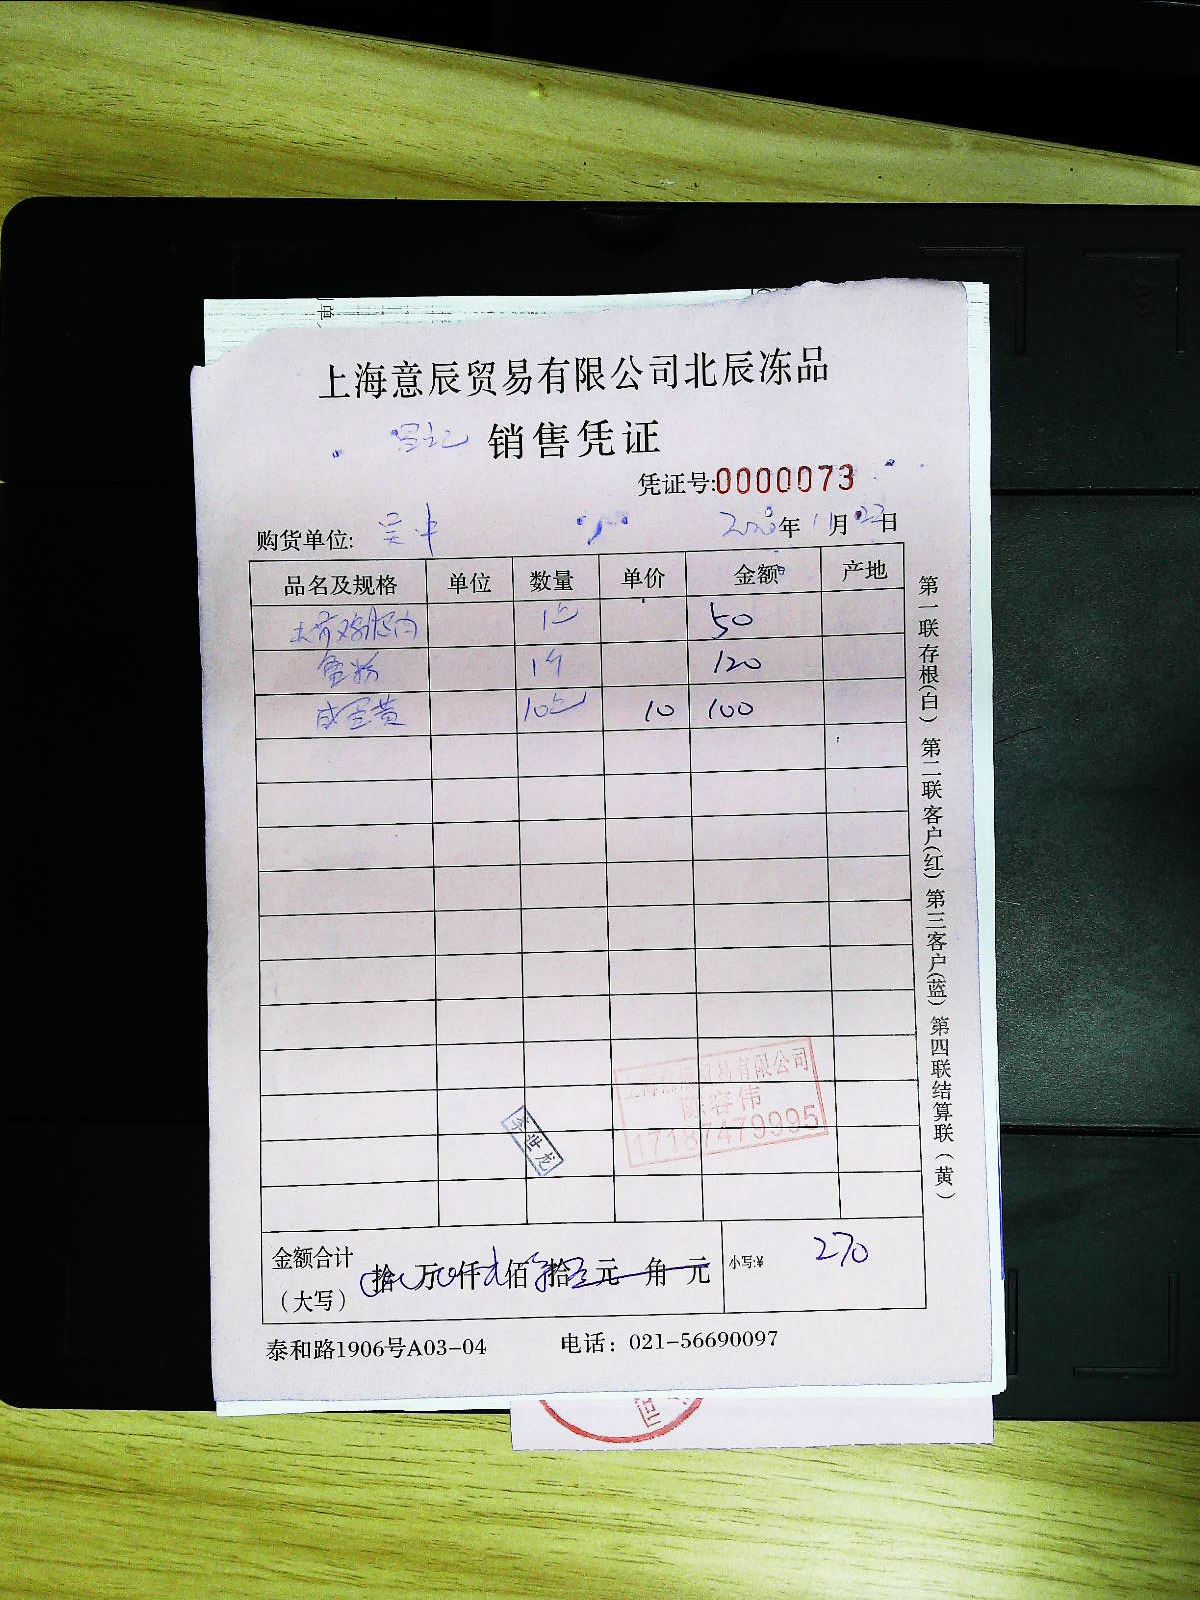 上海意辰贸易有限公司北辰冻品
销售凭证
凭证号:0000073
购货单位: 吴中 年 11月22日
品名及规格 单位 数量 单价 金额 产地
1包 50
1个 120
咸蛋黄 10包 10 100
贸易有限公司
陈容伟
17187479995
李世龙
金额合计(大写) 拾 万 仟 佰 拾 元 角 元 小写:¥ 270
泰和路1906号A03-04 电话：021-56690097
第一联存根(白) 第二联客户(红) 第三客户(蓝) 第四联结算联(黄)